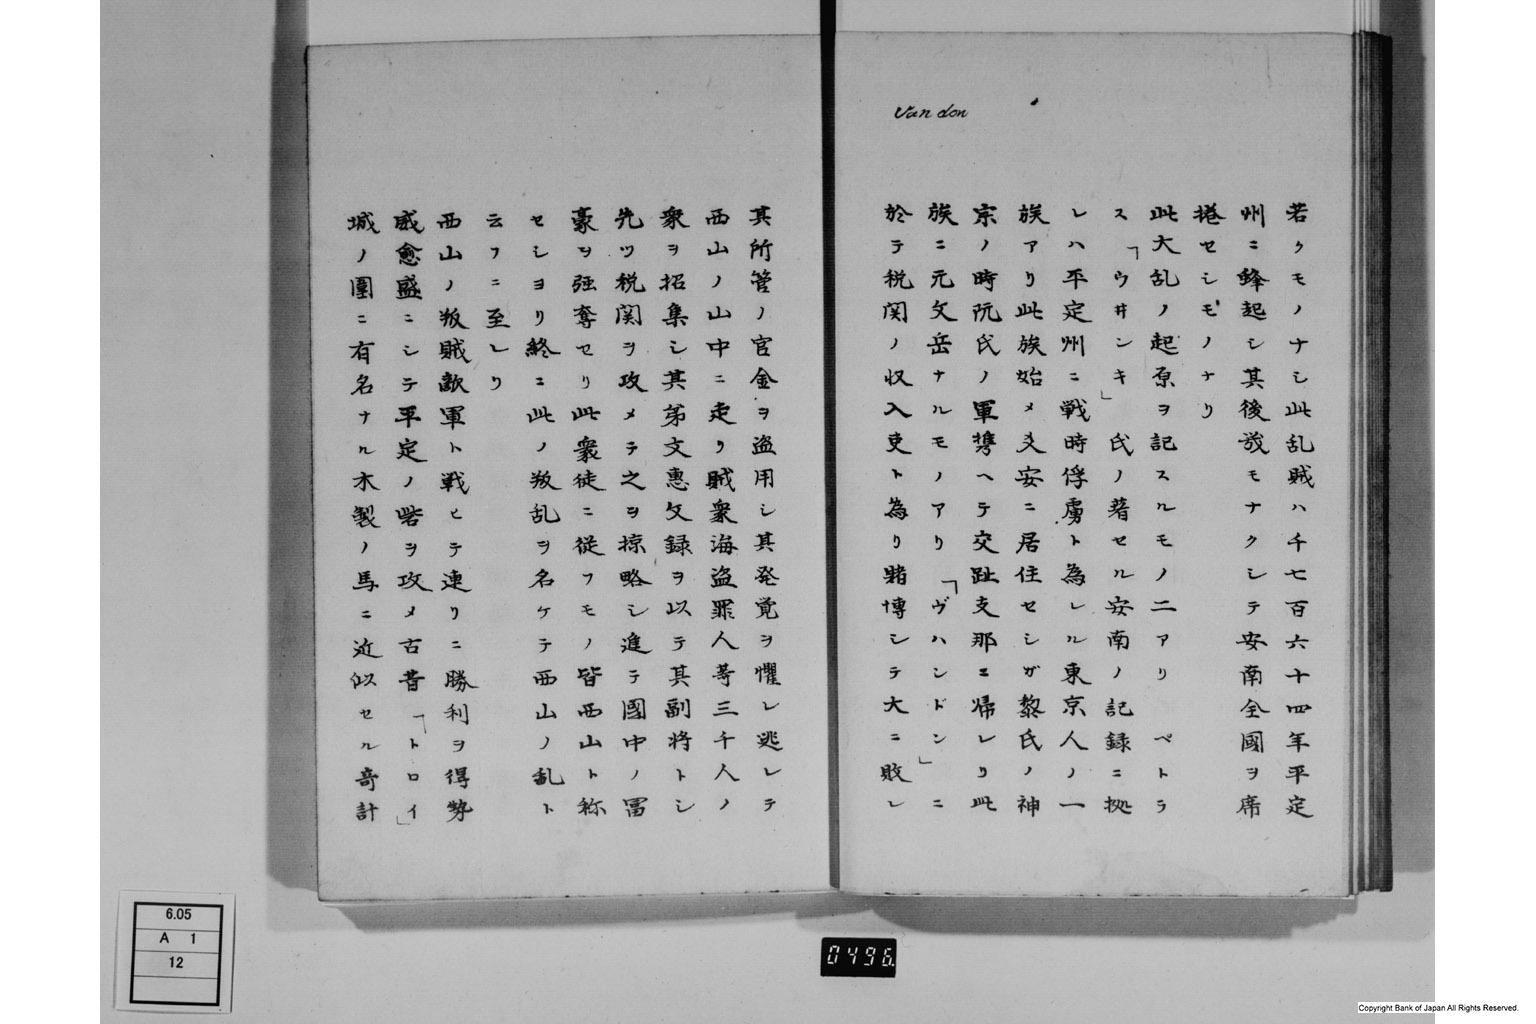 Van don
若クモノナシ此乱賊ハ千七百六十四年平定
州ニ蜂起シ其後幾モナクシテ安南全國ヲ席
捲セシモノナリ
此大乱ノ起原ヲ記スルモノ二アリ ペトラ
ス「ウ井ンキ」氏ノ著セル安南ノ記録ニ拠
レハ平定州ニ戦時俘虜ト為レル東京人ノ一
族アリ此族始メ爻安ニ居住セシガ黎氏ノ神
宗ノ時阮氏ノ軍携ヘテ交趾支那ニ帰レリ此
族ニ元文岳ナルモノアリ「ヴハンドン」ニ
於テ税関ノ収入吏ト為リ賭博シテ大ニ敗レ
其所管ノ官金ヲ盗用シ其発覚ヲ懼レ逃レテ
西山ノ山中ニ走リ賊衆海盗罪人等三千人ノ
衆ヲ招集シ其弟文惠文録ヲ以テ其副将トシ
先ツ税関ヲ攻メテ之ヲ掠略シ進テ國中ノ冨
豪ヲ強奪セリ此衆徒ニ従フモノ皆西山ト称
セシヨリ終ニ此ノ叛乱ヲ名ケテ西山ノ乱ト
云フニ至レリ
西山ノ叛賊敵軍ト戦ヒテ連リニ勝利ヲ得勢
威愈盛ニシテ平定ノ砦ヲ攻メ古昔「トロイ」
城ノ圍ニ有名ナル木製ノ馬ニ近似セル奇計
6.05
A 1
12
0496
Copyright Bank of Japan All Rights Reserved.